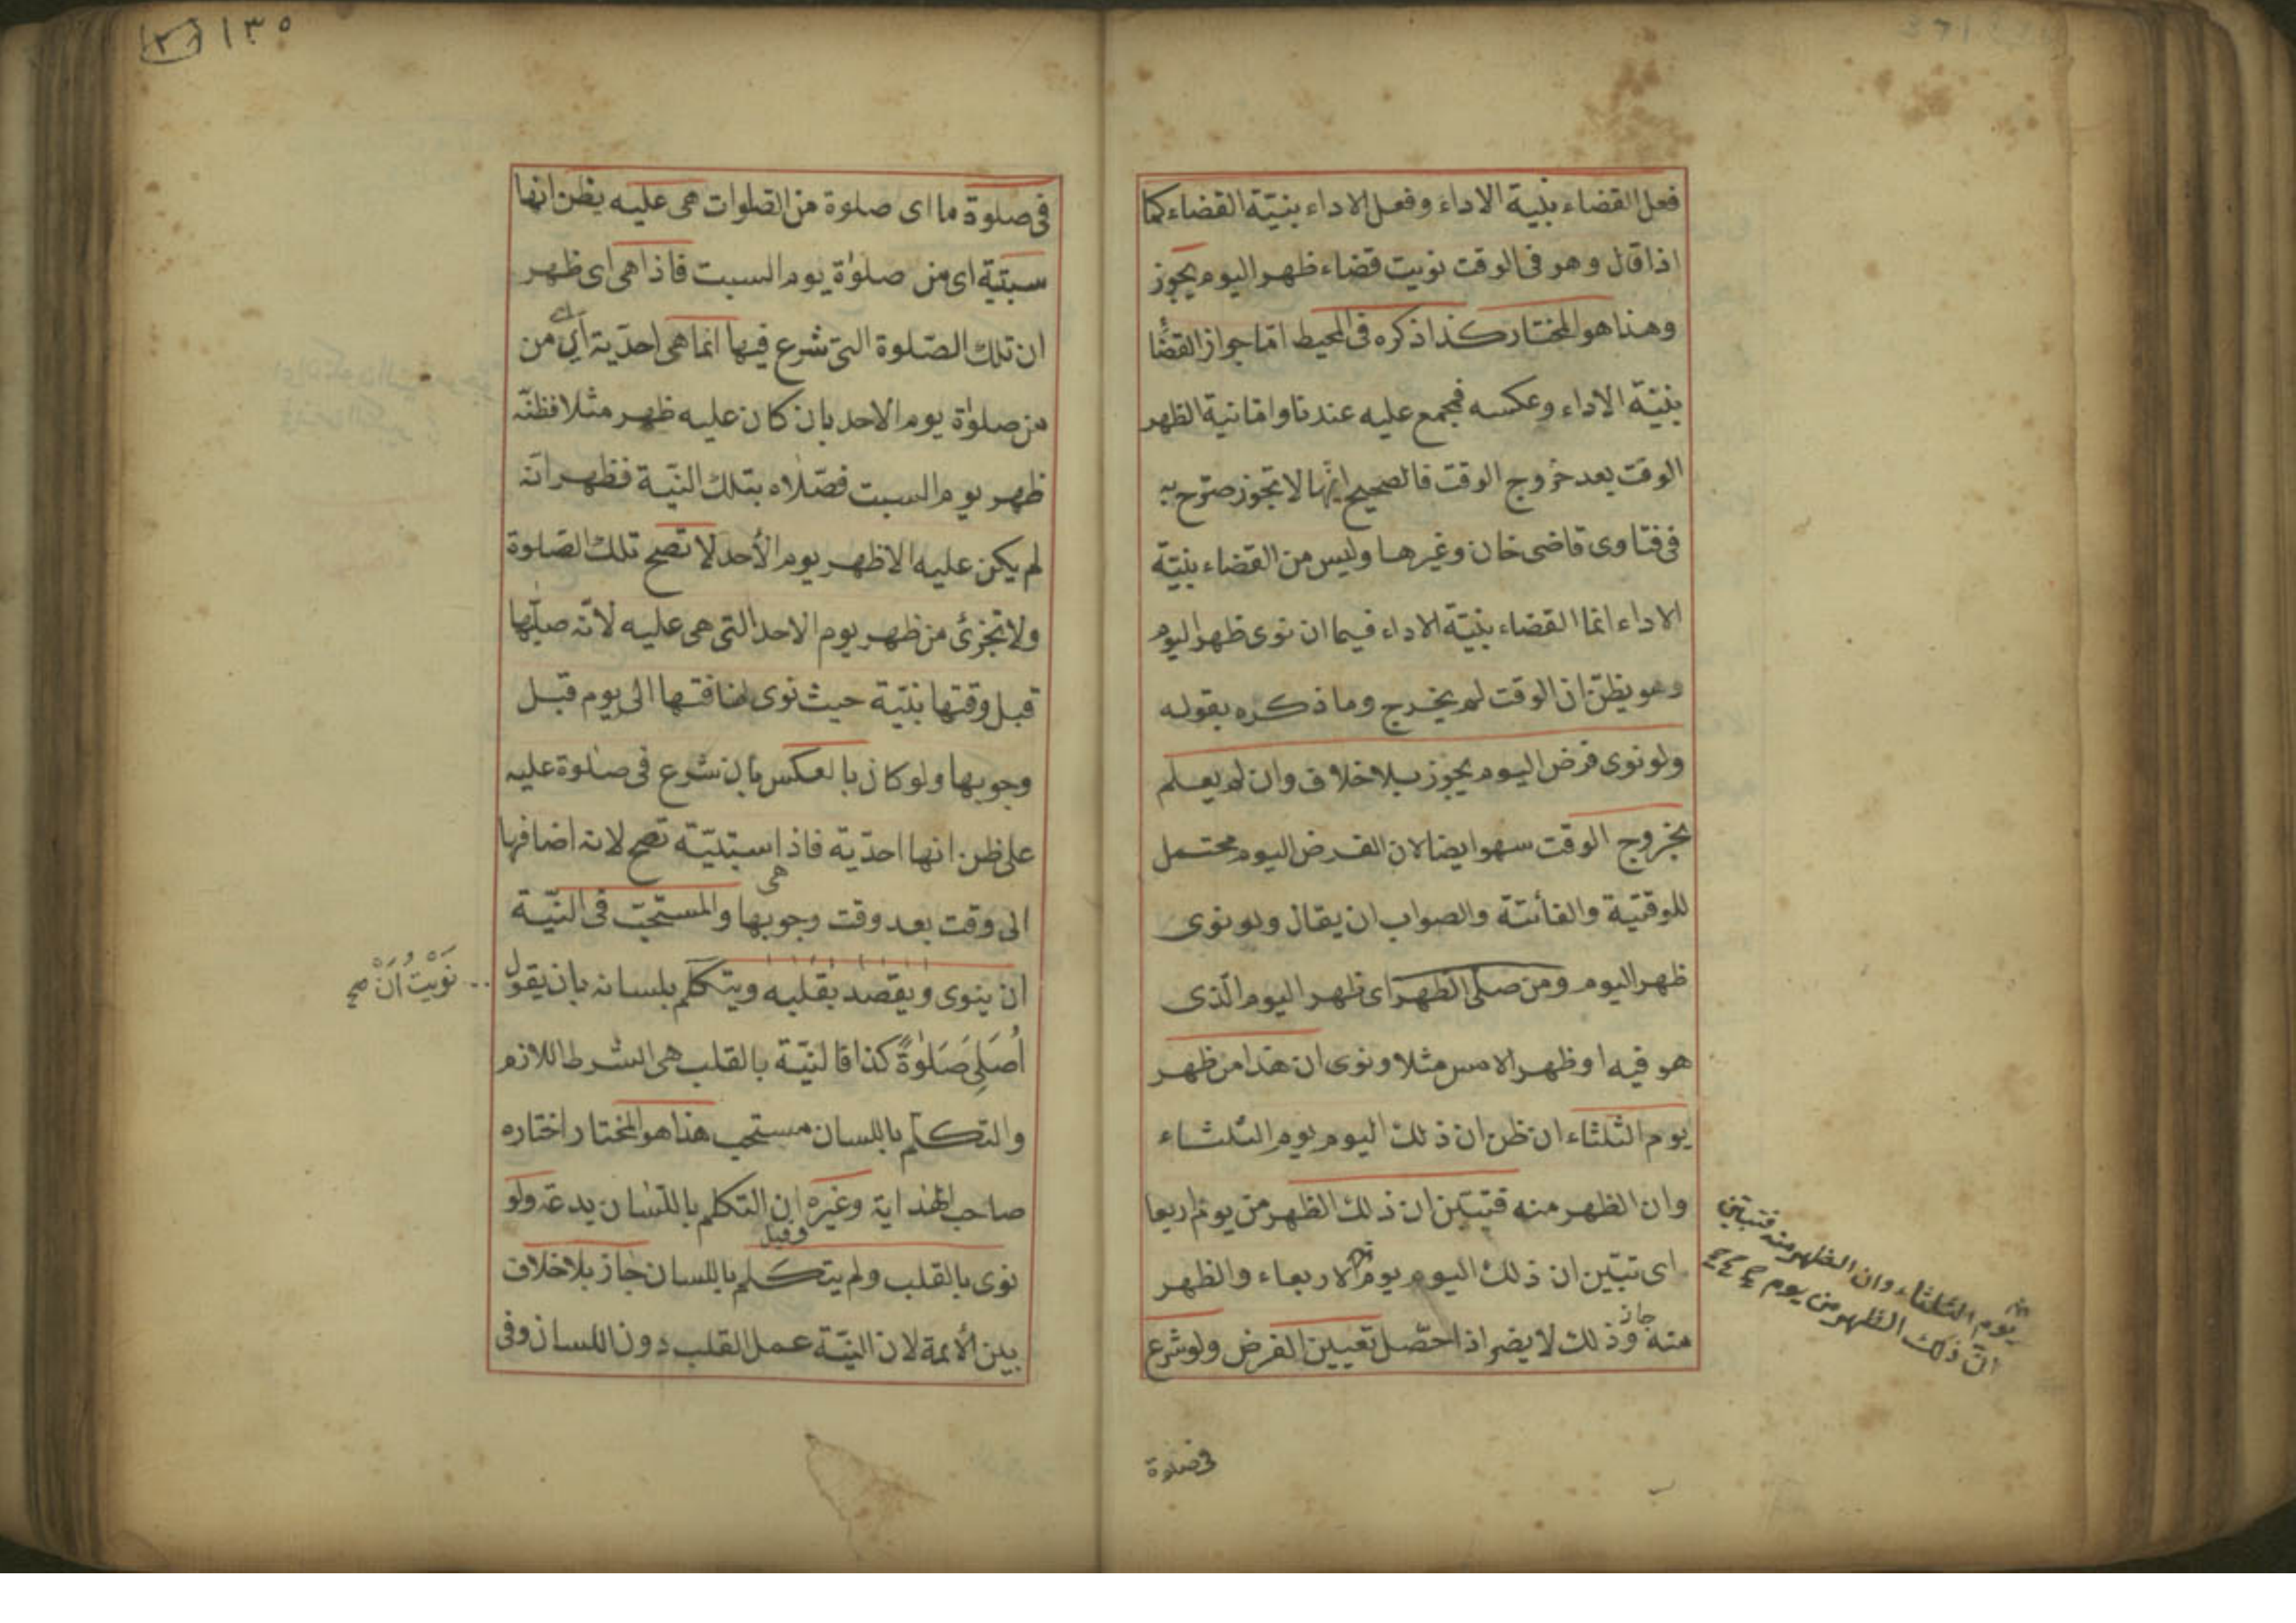 فعل القضاء بنية الاداء وفعل الاداء بنيّة القضاء كما
اذا قال وهو فى الوقت نويت قضاء ظهر اليوم يجوز
وهذا هو المختار كذا ذكره فى المحيط امّا جواز القضا
بنيّة الاداء وعكسه فمجمع عليه عندنا وامّا نية الظهر
الوقت بعد خروج الوقت فالصحيح انّها لا تجوز صرّح به
فى فتاوى قاضى خان وغيرها وليس من القضاء بنيّة
الاداء انما القضاء بنيّة الاداء فيما ان نوى ظهر اليوم
وهو يظنّ ان الوقت لم يخرج وما ذكره بقوله
ولو نوى فرض اليوم يجوز بلا خلاف وان لم يعلم
بخروج الوقت سهو ايضا لان الفرض اليوم محتمل
للوقتية والفائتة والصواب ان يقال ولو نوى
ظهر اليوم ومن صلّى الظهر اى ظهر اليوم الّذى
هو فيه او ظهر الامس مثلا ونوى ان هذا من ظهر
يوم الثلثاء ان ظن ان ذلك اليوم يوم الثلثاء
وان الظهر منه فتبيّن ان ذلك الظهر من يوم اربعا
اى تبيّن ان ذلك اليوم يوم الاربعاء والظهر
منه جاز وذلك لا يضر اذا حصّل تعيين الفرض ولو شرع
يوم الثلثاء وان الظهر منه فتباين
انّ ذلك الظهر من يوم
فى صلوة
١٣٥
فى صلوة ما اى صلوة من الصلوات هى عليه يظن انها
سبتيّة اى من صلوٰة يوم السبت فاذا هى اى ظهر
ان تلك الصّلوة التى شرع فيها انما هى احدّية اى من
من صلوٰة يوم الاحد بان كان عليه ظهر مثلا فظنّه
ظهر يوم السبت فصّلاه بتلك النيّة فظهر انّه
لم يكن عليه الا ظهر يوم الأحد لا تصح تلك الصّلوة
ولا تجزئ من ظهر يوم الاحد التى هى عليه لانّه صلّيها
قبل وقتها بنيّة حيث نوى اضافتها الى يوم قبل
وجوبها ولو كان بالعكس بان شرع فى صلوة عليه
على ظن انها احدّية فاذا هى سبتيّة تصح لانه اضافها
الى وقت بعد وقت وجوبها والمستحبّ فى النيّة
ان ينوى ويقصد بقلبه ويتكلّم بلسانه بان يقول
نَوَيْتُ اَنْ صح
اُصَلِّى صَلوٰةً كذا فالنيّة بالقلب هى الشرط اللازم
والتكلّم باللسان مستحب هذا هو المختار اختاره
صاحب الهداية وغيره وقيل ان التكلم باللّسان بدعة ولو
نوى بالقلب ولم يتكلم باللسان جاز بلا خلاف
بين الأئمة لان النيّة عمل القلب دون اللسان وفى